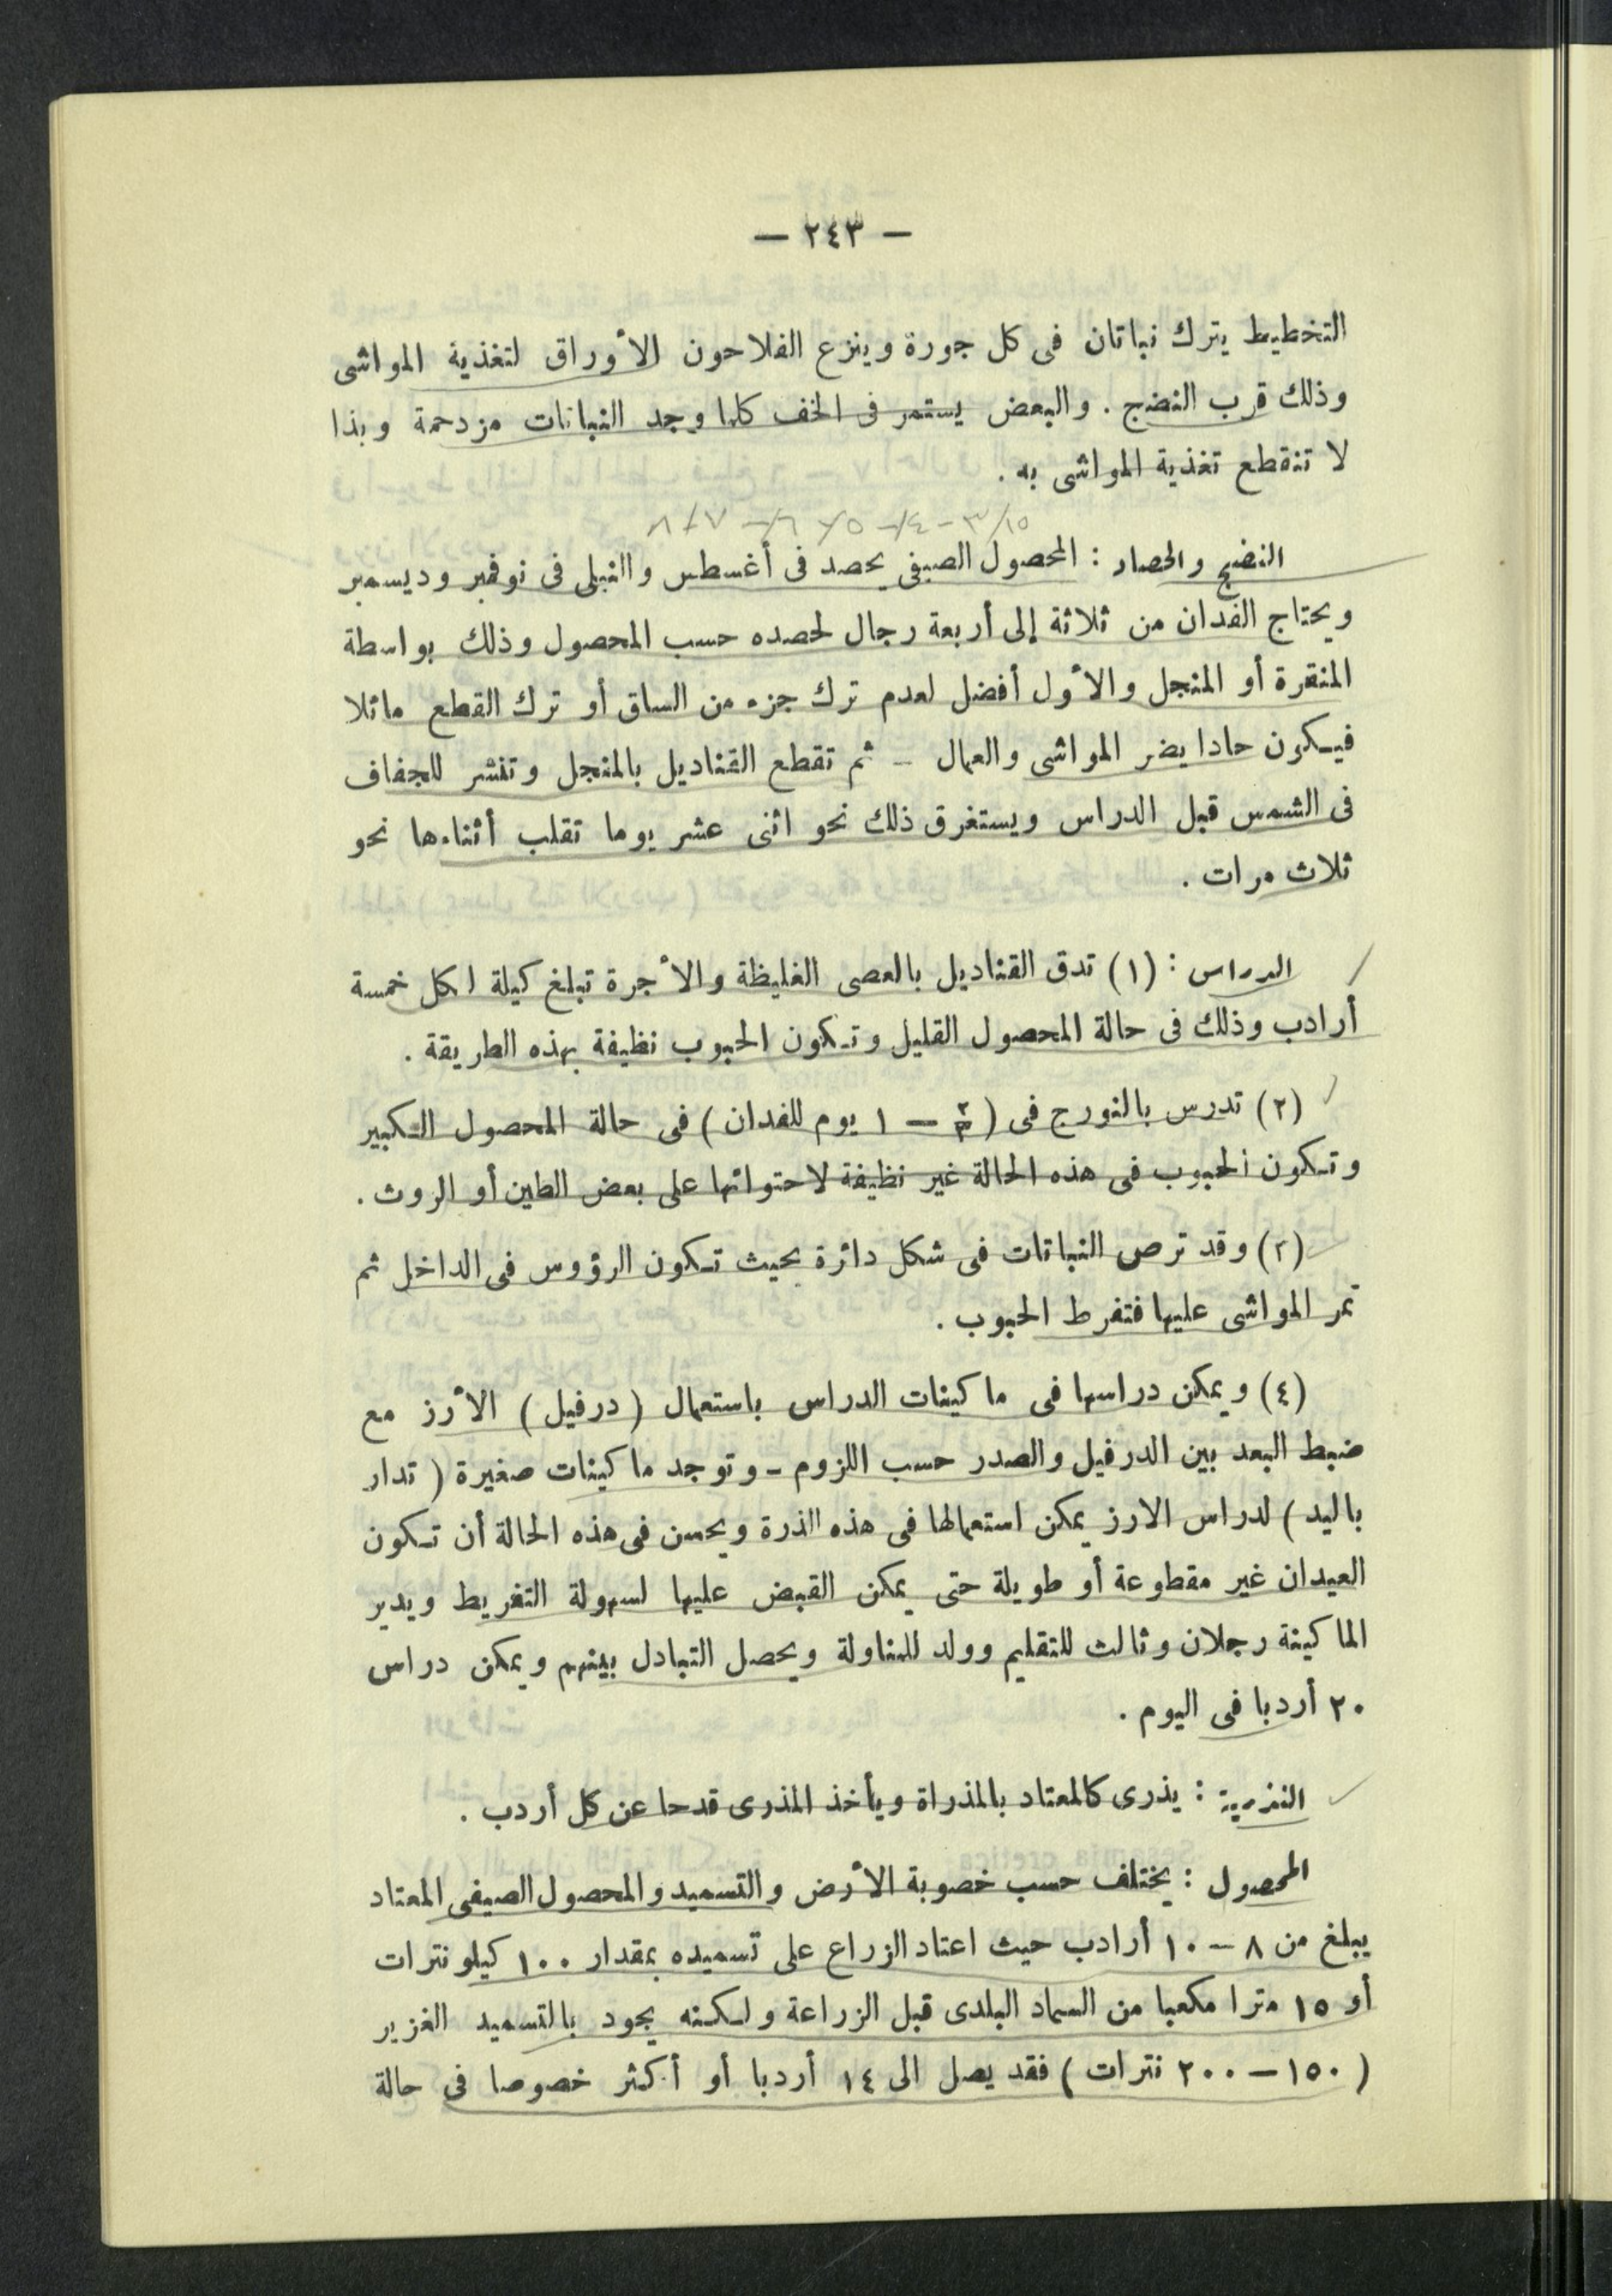 — ٢٤٣ —
التخطيط يترك نباتان فى كل جورة وينزع الفلاحون الأوراق لتغذية المواشى
وذلك قرب النضج . والبعض يستمر فى الخف كلما وجد النباتات مزدحمة وبذا
لا تنقطع تغذية المواشى به .
النضج والحصاد : المحصول الصيفى يحصد فى أغسطس والنيلى فى نوفمبر وديسمبر
ويحتاج الفدان من ثلاثة إلى أربعة رجال لحصده حسب المحصول وذلك بواسطة
المنقرة أو المنجل والأول أفضل لعدم ترك جزء من الساق أو ترك القطع مائلا
فيكون حادا يضر المواشى والعمال – ثم تقطع القناديل بالمنجل وتنشر للجفاف
فى الشمس قبل الدراس ويستغرق ذلك نحو اثنى عشر يوما تقلب أثناءها نحو
ثلاث مرات .
الدراس : (١) تدق القناديل بالعصى الغليظة والأجرة تبلغ كيلة لكل خمسة
أرادب وذلك فى حالة المحصول القليل وتكون الحبوب نظيفة بهذه الطريقة .
(٢) تدرس بالنورج فى ( ٢/٣ — ١ يوم للفدان ) فى حالة المحصول الكبير
وتكون الحبوب فى هذه الحالة غير نظيفة لاحتوائها على بعض الطين أو الروث .
(٣) وقد ترص النباتات فى شكل دائرة بحيث تكون الرؤوس فى الداخل ثم
تمر المواشى عليها فتفرط الحبوب .
(٤) ويمكن دراسها فى ماكينات الدراس باستعمال ( درفيل ) الأرز مع
ضبط البعد بين الدرفيل والصدر حسب اللزوم – وتوجد ماكينات صغيرة ( تدار
باليد ) لدراس الارز يمكن استعمالها فى هذه الذرة ويحسن فى هذه الحالة أن تكون
العيدان غير مقطوعة أو طويلة حتى يمكن القبض عليها لسهولة التفريط ويدير
الماكينة رجلان وثالث للتقليم وولد للمناولة ويحصل التبادل بينهم ويمكن دراس
٢٠ أردبا فى اليوم .
التذرية : يذرى كالمعتاد بالمذراة ويأخذ المذرى قدحا عن كل أردب .
المحصول : يختلف حسب خصوبة الأرض والتسميد والمحصول الصيفى المعتاد
يبلغ من ٨ – ١٠ أرادب حيث اعتاد الزراع على تسميده بمقدار ١٠٠ كيلو نترات
أو ١٥ مترا مكعبا من السماد البلدى قبل الزراعة ولكنه يجود بالتسميد الغزير
( ١٥٠ – ٢٠٠ نترات ) فقد يصل الى ١٤ أردبا أو أكثر خصوصا فى حالة